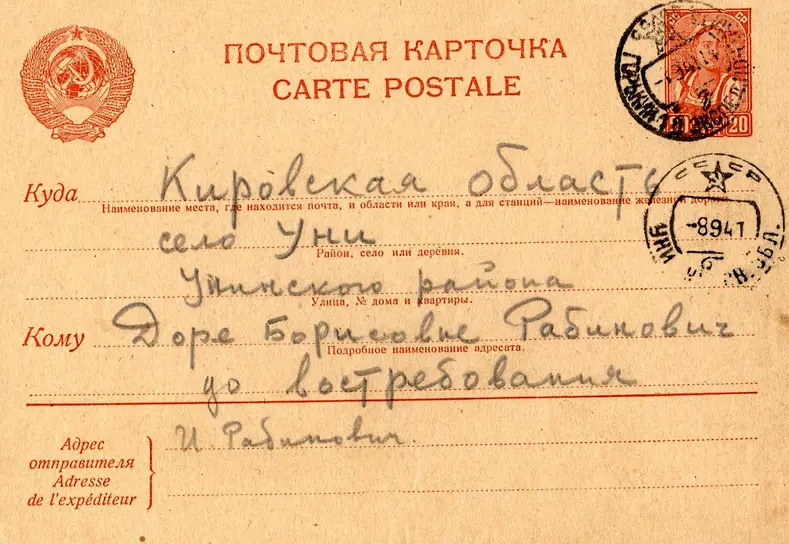 ПОЧТОВАЯ КАРТОЧКА
CARTE POSTALE
20
Куда Кировская область
Наименование места, где находится почта, и области или края, а для станций—наименование железной дороги
село Уни
Район, село или деревня.
Унинского района
Улица, № дома и квартиры.
Кому Доре Борисовне Рабинович
Подробное наименование адресата.
до востребования
Адрес
отправителя
Adresse
de l'expéditeur
И Рабинович.
СССР
-8941
УНИ